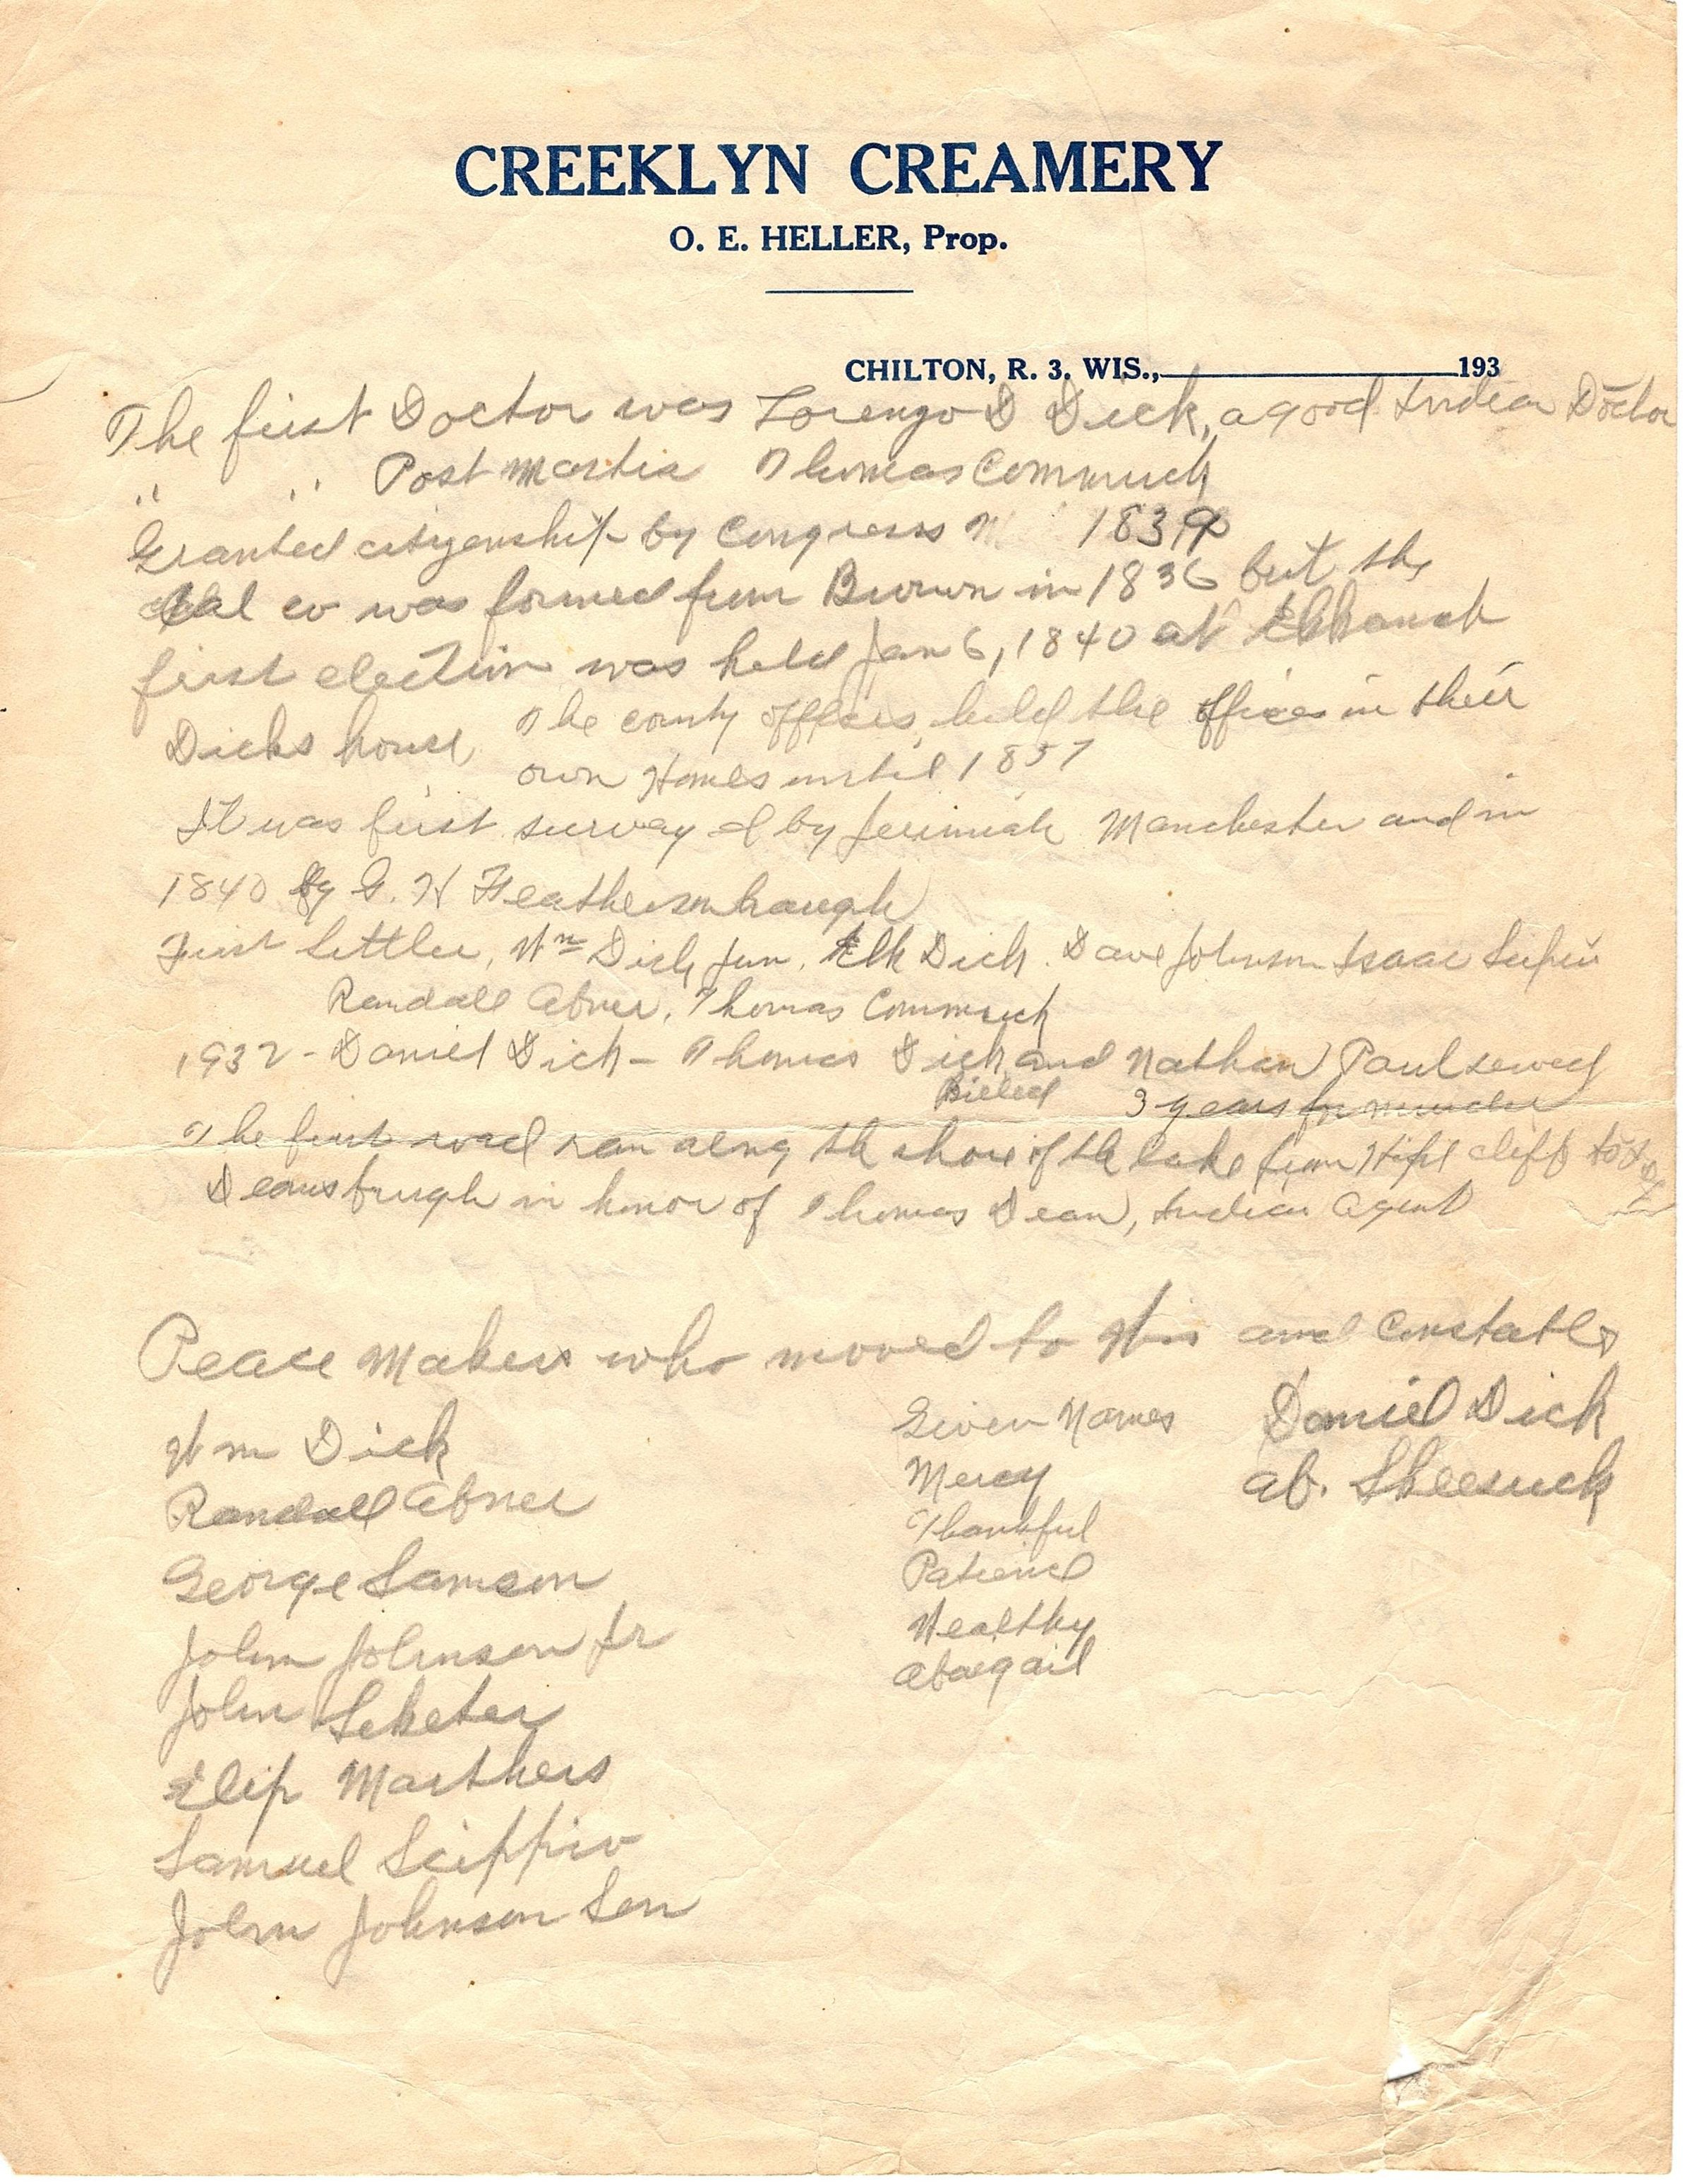 CREEKLYN CREAMERY
O. E. HELLER, Prop.
CHILTON, R. 3. WIS., 193
The first Doctor was Lorenzo D Dick, a good Indian Doctor
" " Post Martia Thomas Commuck
Granted citizenship by Congress 1839
Cal co was formed from Brown in 1836 but the
first election was held Jan 6, 1840 at Elkanah
Dicks house The county offices held the offices in their
own Homes until 1857
It was first survay ed by Jerimiah Manchester and in
1840 by G. W Featherson haugh
First Settler, Wm Dick Jun. Elk Dick. Dave Johnson Isaac
Randall Abner, Thomas Commuck
1932 - Daniel Dick - Thomas Dick and Nathan Paul served
Killed 3 years for murder
The first road ran along th shore of th lake from High cliff to
Deansbrugh in honor of Thomas Dean, Indian Agent
Peace Makers who moved to Wis and Constables
Wm Dick Given Names Daniel Dick
Randall Abner Mercy ab. Skeesuck
George Samson Thankful
John Johnson Jr Patience
John Seketer Wealthy
Elip Marthers Abaigail
Samuel Scippio
John Johnson Sen